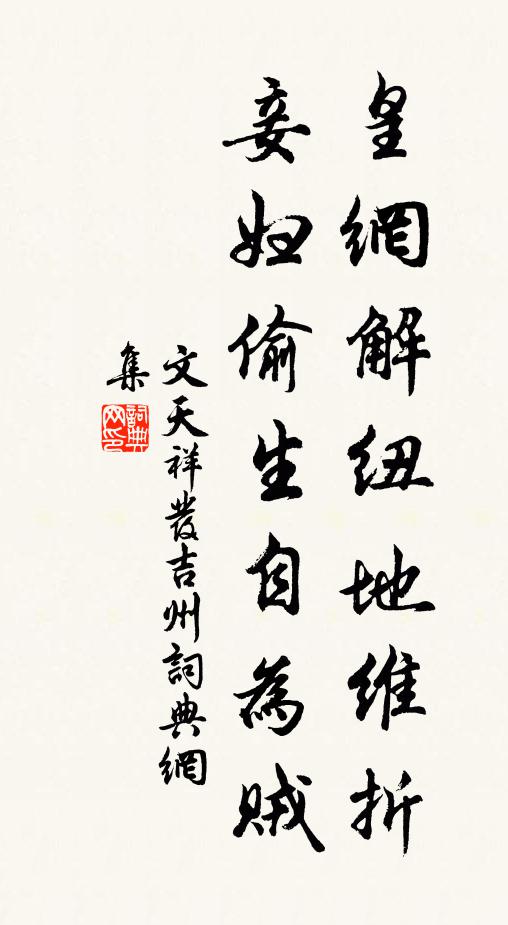 皇網解紐地維折
妾婦偷生自為賊
文天祥發吉州詞典網
集
詞典網印